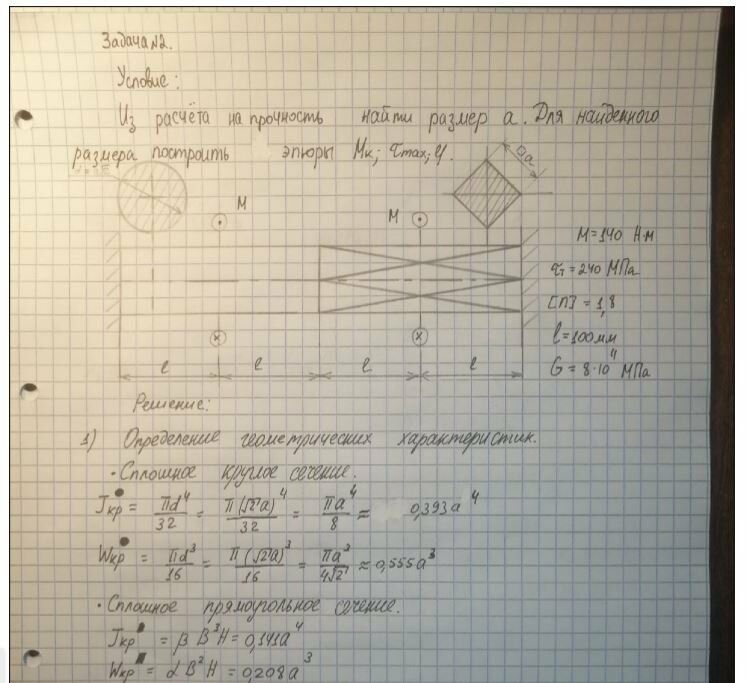 Задача №2.
Условие:
Из расчёта на прочность найти размер а. Для найденного
размера построить эпюры Мк; τmax; φ.
□a
M
M
M=140 Н·м
τт=240 МПа
[n]=1,8
l=100мм
G=8·10⁴ МПа
l l l l
Решение:
1) Определение геометрических характеристик.
• Сплошное круглое сечение.
Jкр● = πd⁴/32 = π(√2a)⁴/32 = πa⁴/8 ≈ 0,393a⁴
Wкр● = πd³/16 = π(√2a)³/16 = πa³/4√2 ≈ 0,555a³
• Сплошное прямоугольное сечение.
Jкр■ = βB³H=0,141a⁴
Wкр■ = αB²H=0,208a³